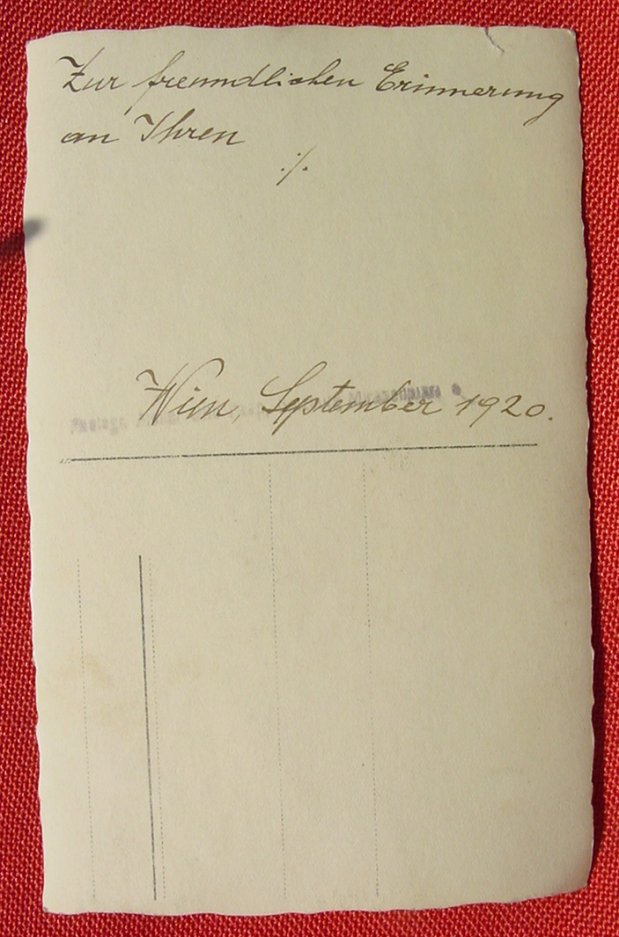 Zur freundlichen Erinnerung
an Ihren
./.
Wien, September 1920.